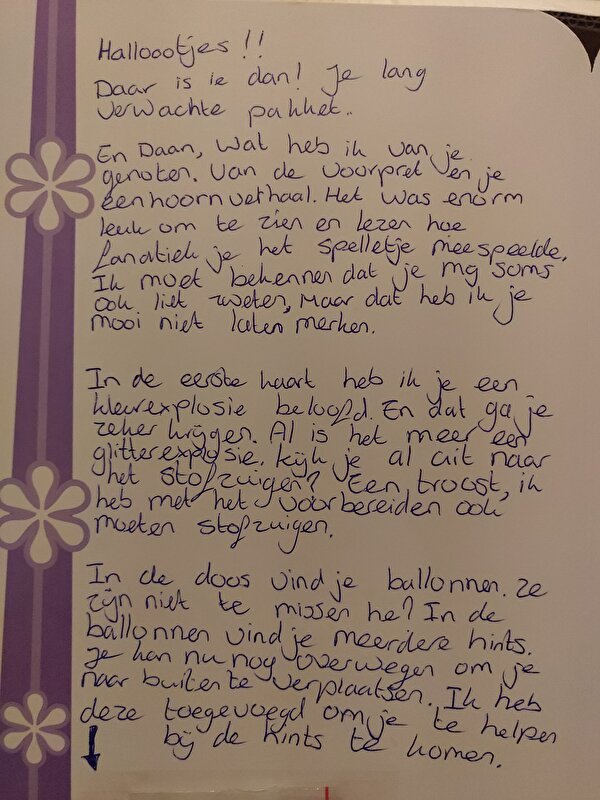 Halloootjes !!
Daar is ie dan! Je lang
verwachte pakket..
En Daan, wat heb ik van je
genoten. Van de voorpret en je
eenhoornverhaal. Het was enorm
leuk om te zien en lezen hoe
fanatiek je het spelletje meespeelde.
Ik moet bekennen dat je mg soms
ook liet zweten, Maar dat heb ik je
mooi niet laten merken.
In de eerste kaart heb ik je een
kleurexplosie beloofd. En dat ga je
zeker krijgen. Al is het meer een
glitterexplosie. kijk je al uit naar
het stofzuigen? Een troost, ik
heb met het voorbereiden ook
moeten stofzuigen.
In de doos vind je ballonnen. ze
zijn niet te missen he? In de
ballonnen vind je meerdere hints.
Je kan nu nog overwegen om je
naar buiten te verplaatsen. Ik heb
deze toegevoegd om je te helpen
bij de hints te komen.